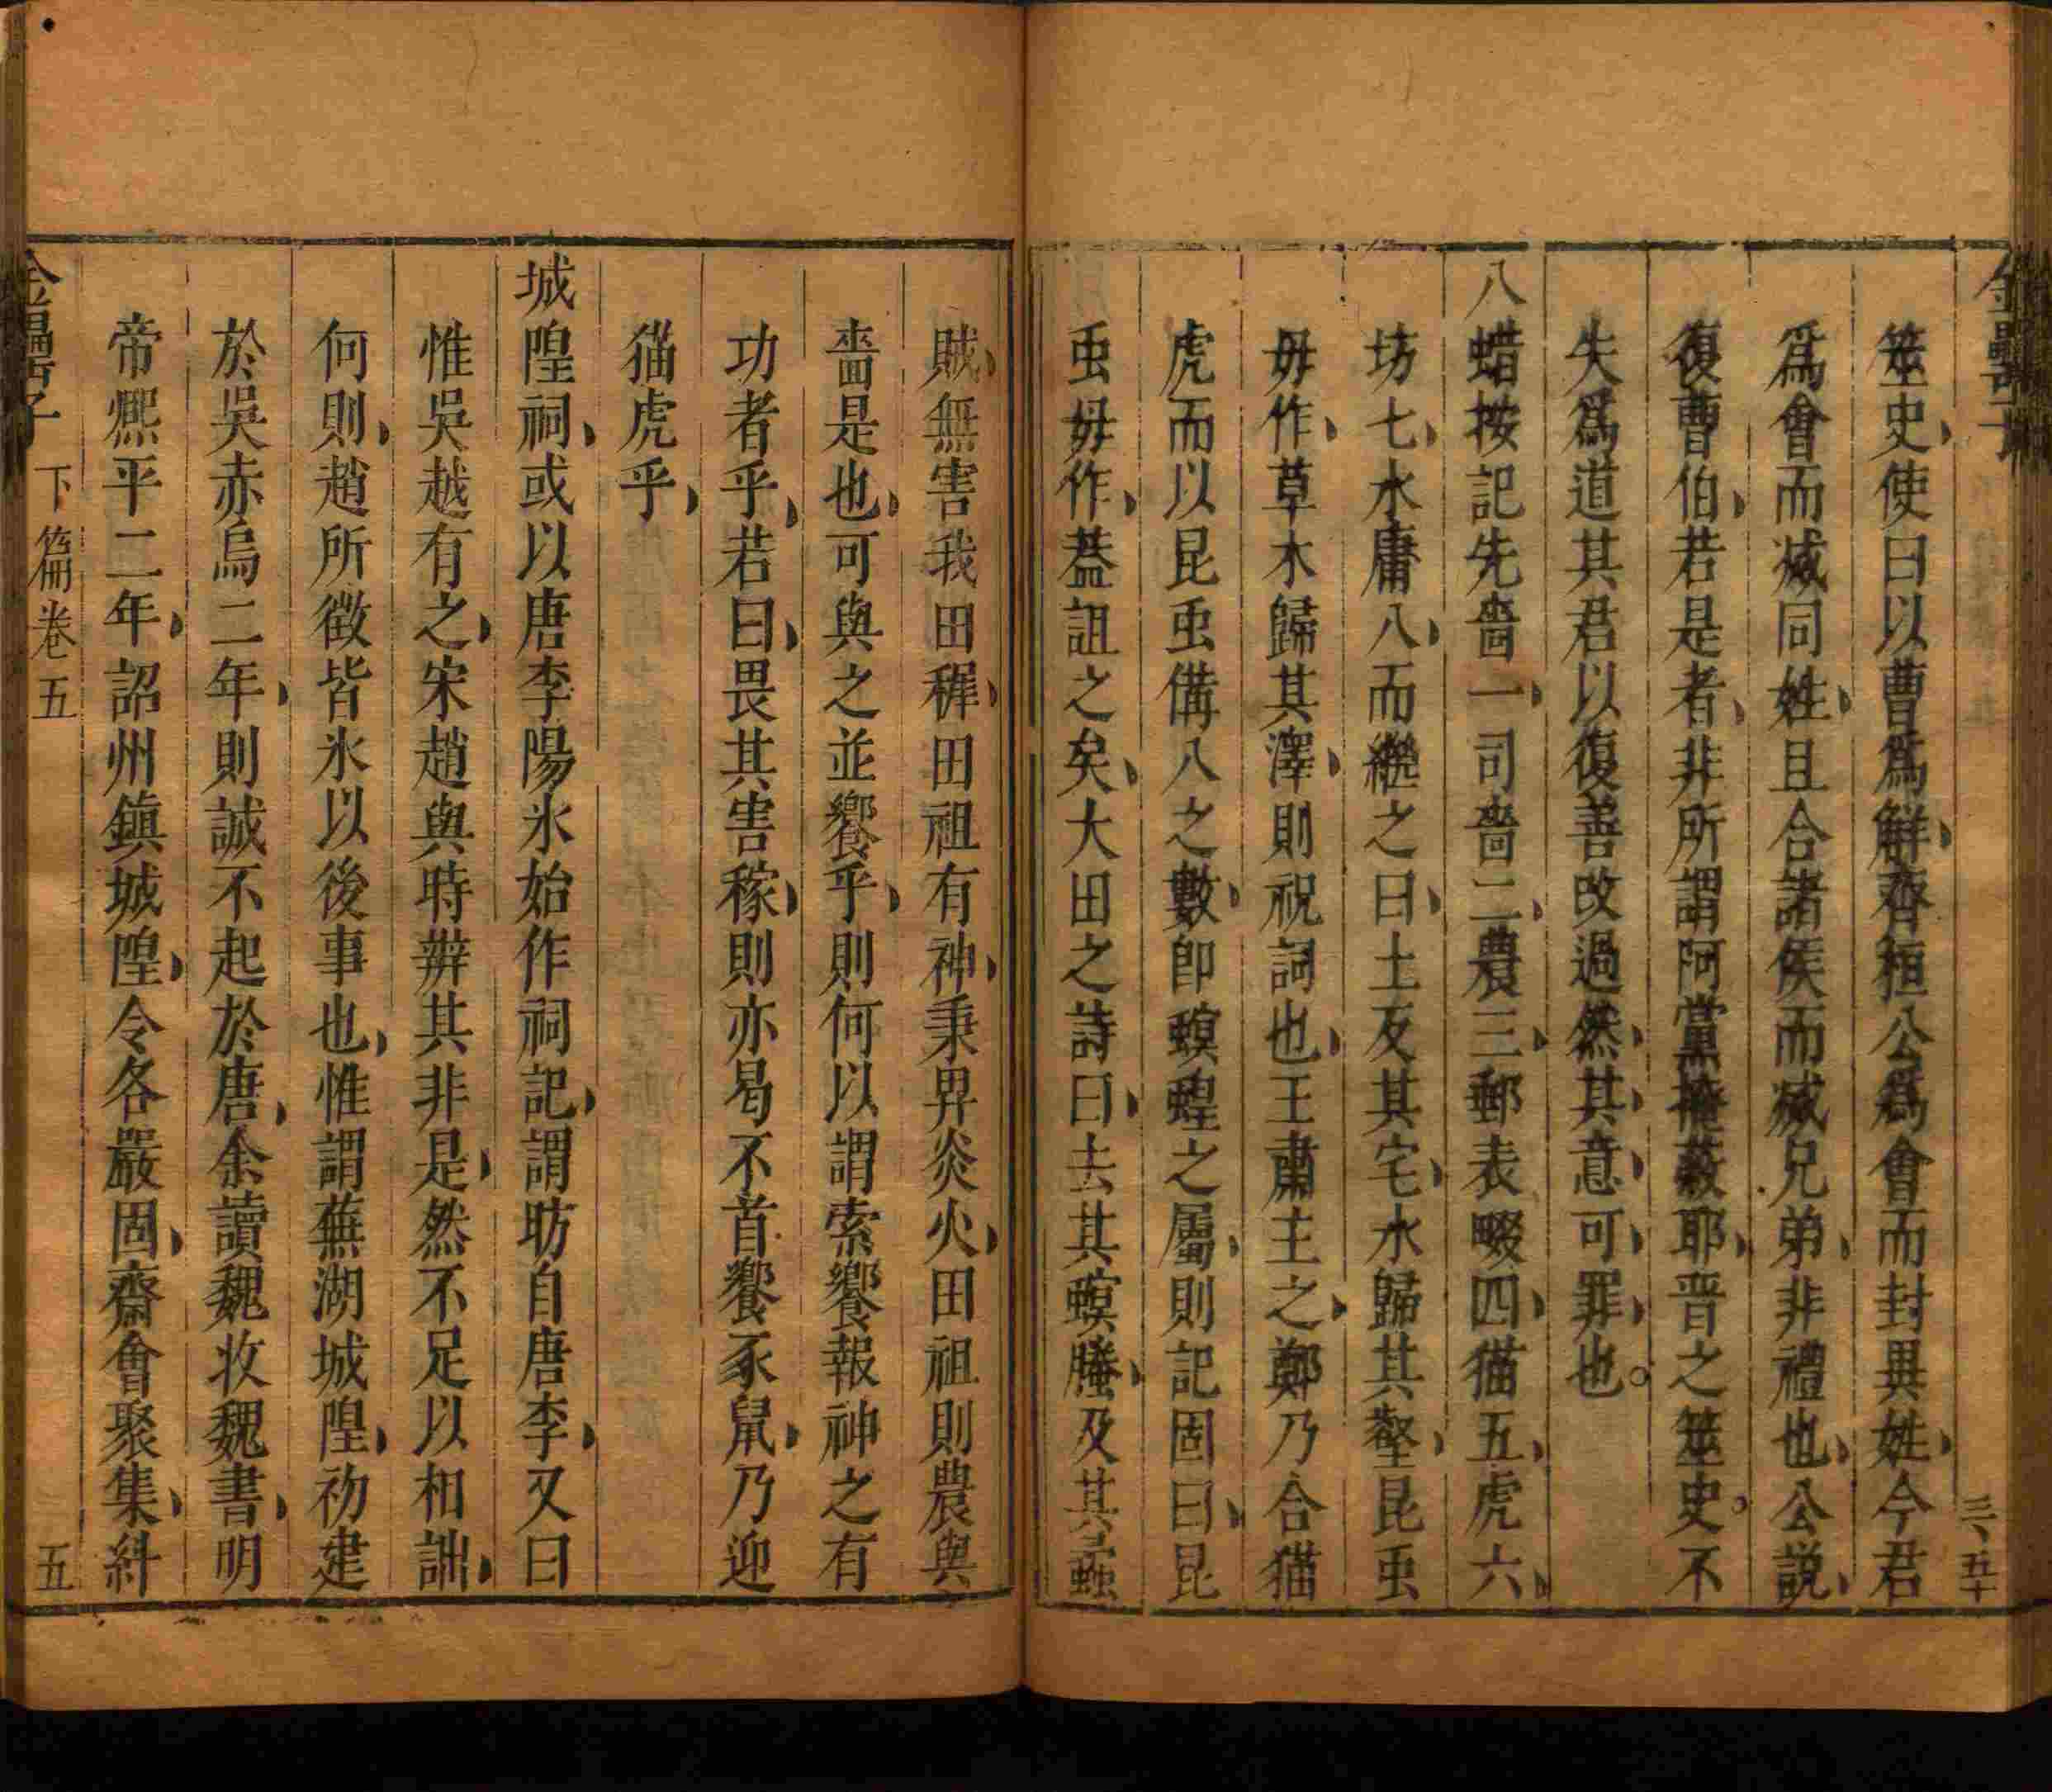 筮史使曰以曹爲解齊桓公爲會而封異姓今君
爲會而滅同姓且合諸侯而滅兄弟非禮也公説
復曹伯若是者非所謂阿黨掩蔽耶晋之筮史不
失爲道其君以復善改過然其意可罪也
八蜡按記先嗇一司嗇二農三郵表畷四猫五虎六
坊七水庸八而繼之曰土反其宅水歸其壑昆䖝
毋作草木歸其澤則祝詞也王肅主之鄭乃合猫
虎而以昆䖝備八之數即螟蝗之屬則記固曰昆
䖝毋作葢詛之矣大田之詩曰去其螟螣及其蟊
賊無害我田穉田祖有神秉畀炎火田祖則農與
嗇是也可與之並饗乎則何以謂索饗報神之有
功者乎若曰畏其害稼則亦曷不首饗豕鼠乃迎
猫虎乎
城隍祠或以唐李陽氷始作祠記謂昉自唐李又曰
惟吳越有之宋趙與時辨其非是然不足以相詘
何則趙所徵皆氷以後事也惟謂蕪湖城隍初建
於吳赤烏二年則誠不起於唐余讀魏收魏書明
帝熈平二年詔州鎮城隍令各嚴固齋會聚集糾
下篇卷五
五